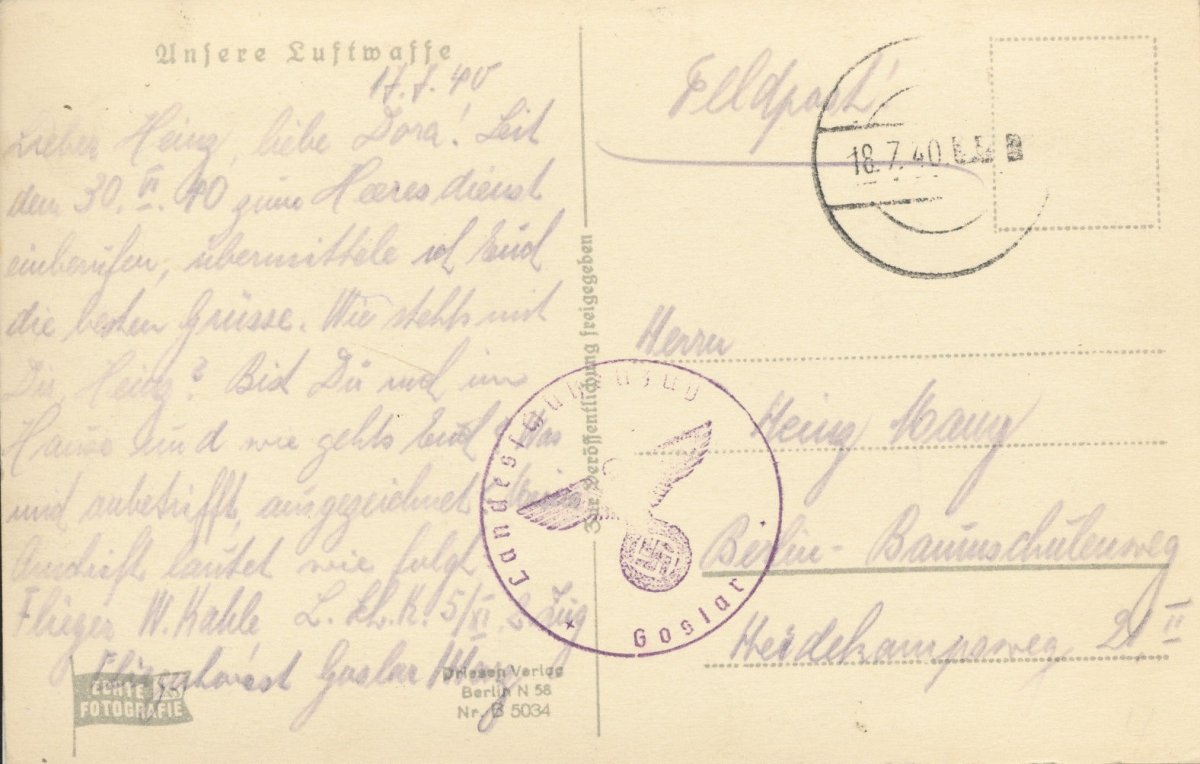 Unsere Luftwaffe
17.7.40
Lieber Heinz, liebe Dora! Seit
dem 30. VI. 40 zum Heeresdienst
einberufen, übermittele ich Euch
die besten Grüsse. Wie stehts mit
Dir, Heinz? Bist Du noch im
Hause und wie gehts Euch? Was
mich anbetrifft, ausgezeichnet. Meine
Anschrift lautet wie folgt
Flieger W. Kahle L. Sch. K. 5/XI, 2. Zug
Fliegerhorst Goslar/Harz
ECHTE
FOTOGRAFIE
Driesen Verlag
Berlin N 58
Nr. B 5034
Zur Veröffentlichung freigegeben
Feldpost!
18.7.40
Landesschützenzug
Goslar
Herrn
Heinz
Berlin-Baumschulenweg
Heidekampweg II